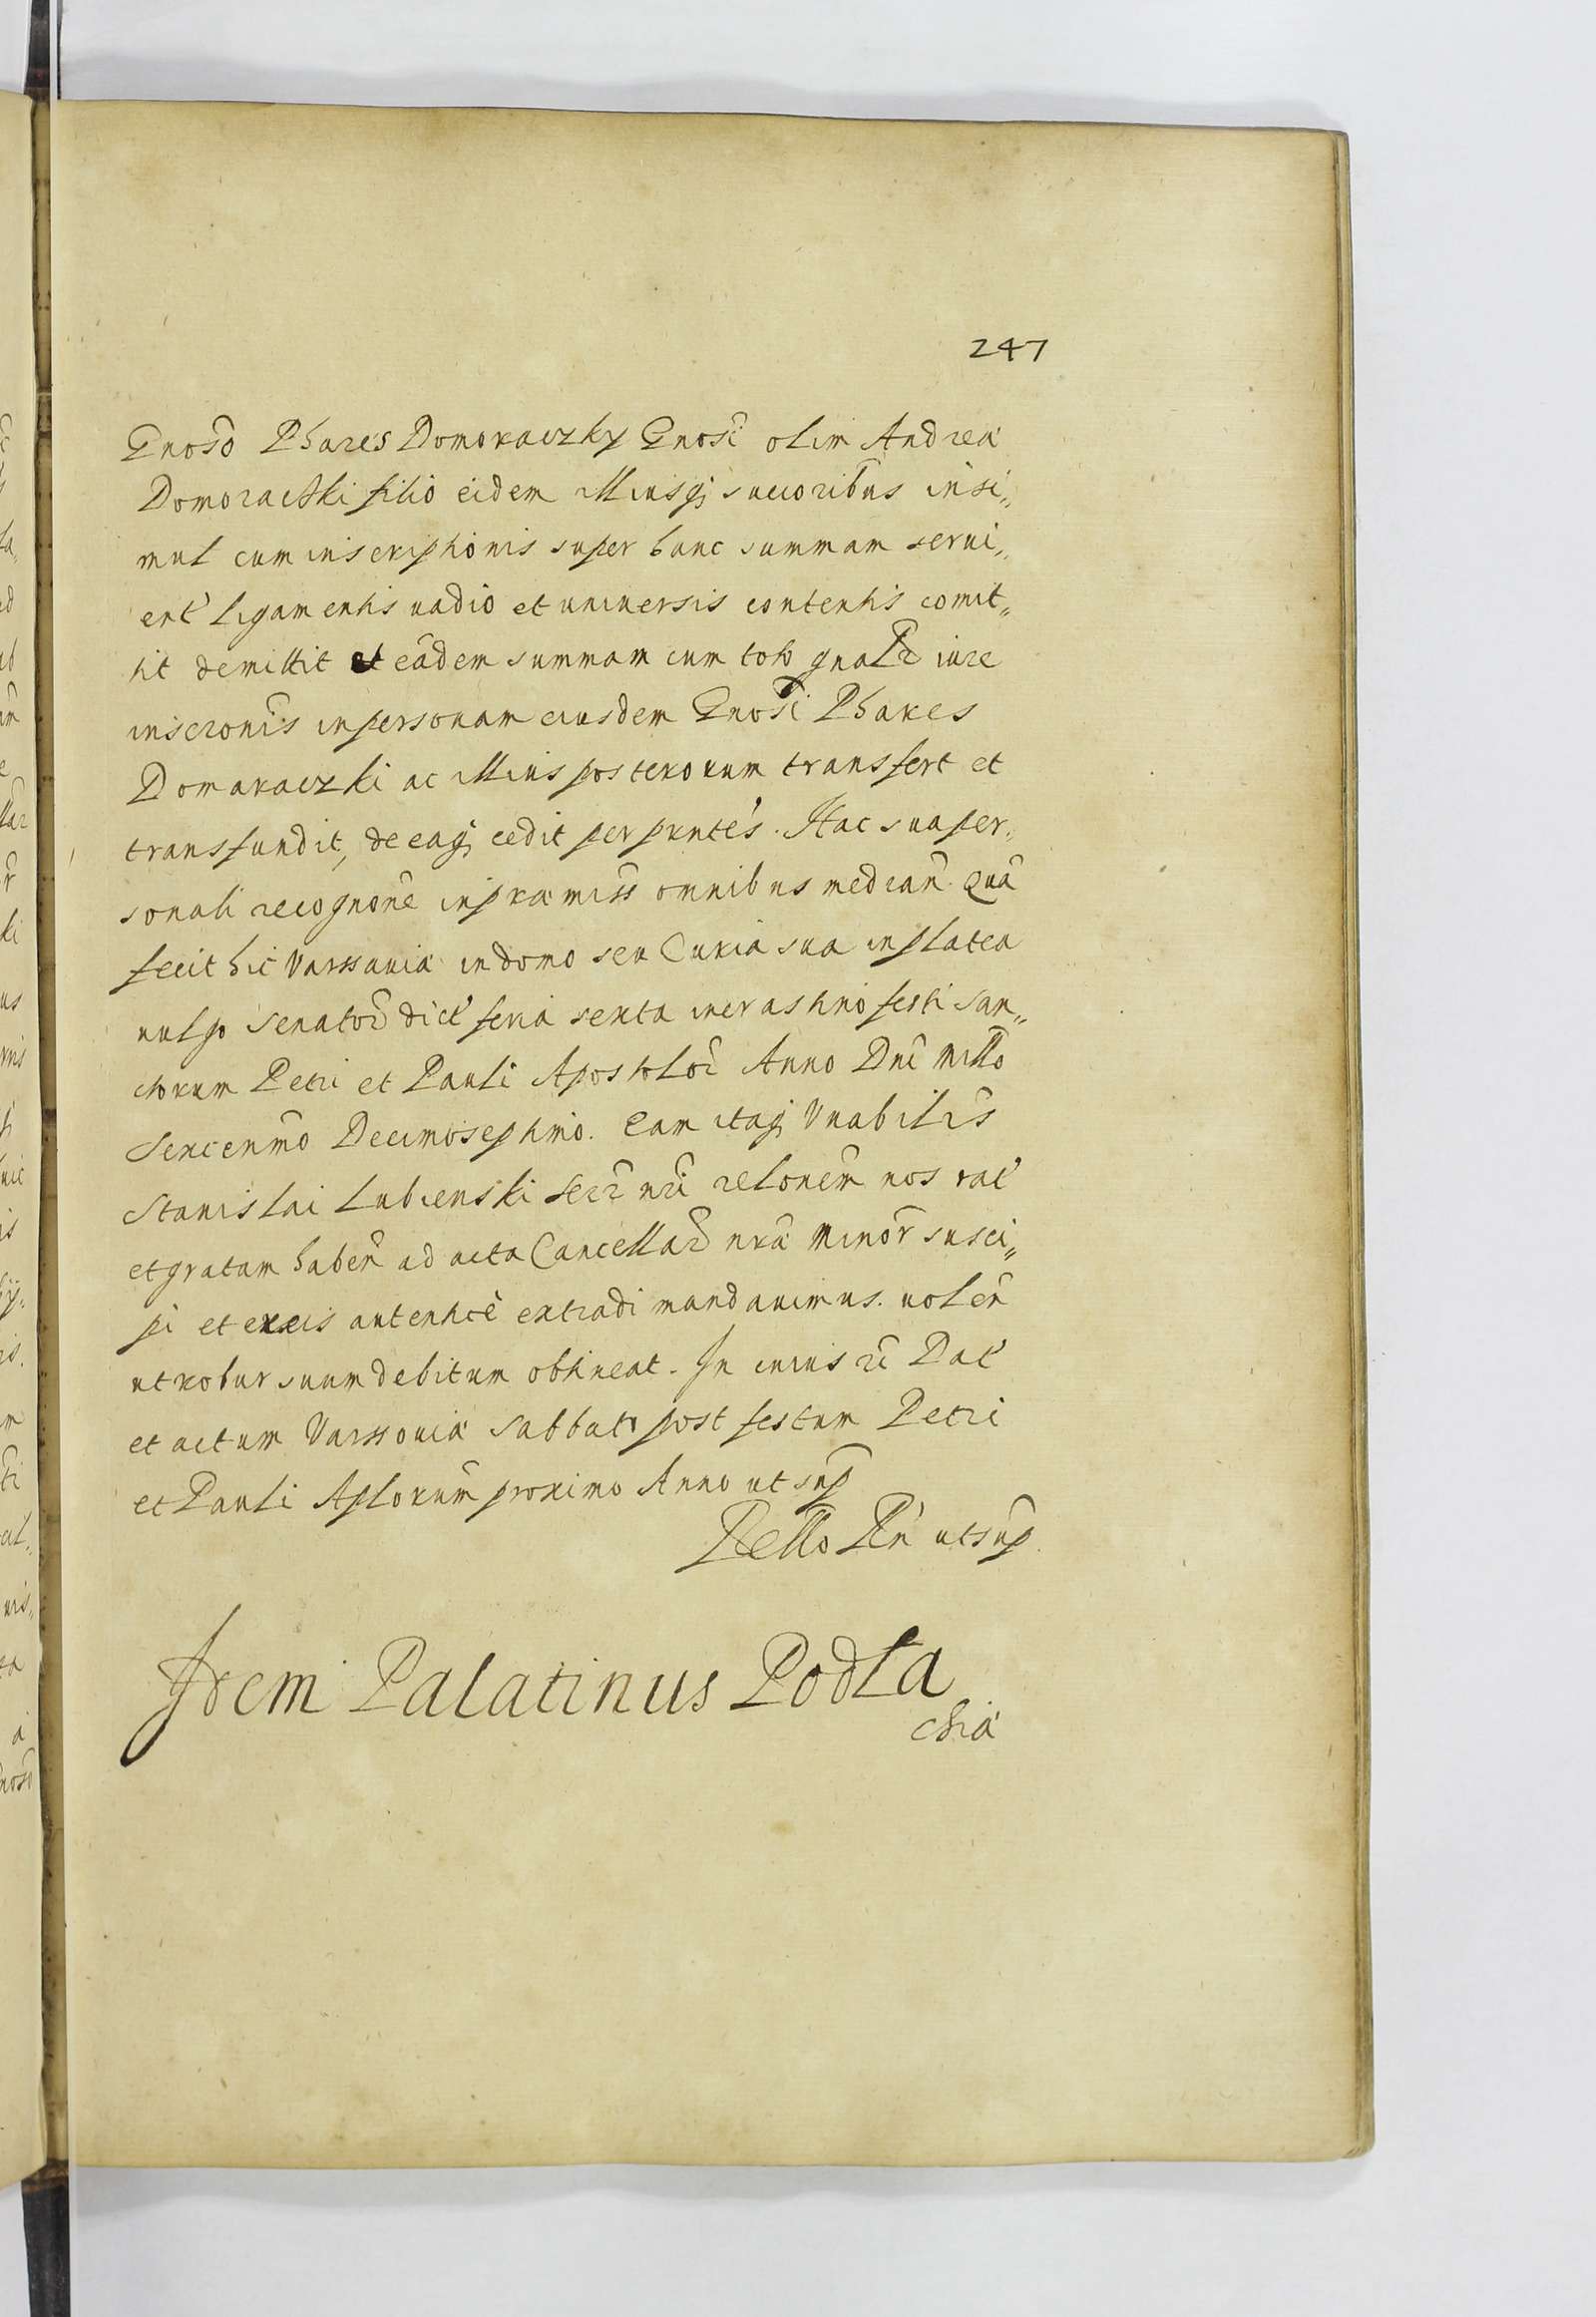 247
Gnoso Phares Domoraczky Gnosi olim Andreæ
Domoraczki filio eidem illiusq; succoribus insi„
mul cum inscriptionis super hanc summam serui„
ent ligamentis uadio et uniuersis contentis comit„
tit demittit et eadem summam cum toto gnali iure
inscronis in personam eiusdem Gnosi Phares
Domaraczki ac illius posterorum transfert et
transfundit, de eaq; cedit per pnntes. Hac sua per„
sonali recognone in præmiss omnibus median. Quã
fecit hic Varssauiæ in domo seu Curia sua in platea
uulgo Senator dict feria sexta in crastino festi San„
ctorum Petri et Pauli Apostolor Anno Dni Millo
Sexcenmo Decimoseptimo. Eam itaq; Vnabilis
Stanislai Lubienski Secr nri relonem nos rat
et gratam haben ad acta Cancellar nræ Minor susci„
pi et ex eis autentice extradi mandauimus. uolen
ut robur suum debitum obtineat. In cuius rei Dat
et actum Varssouiæ Sabbato post festum Petri
et Pauli Aplorum proximo Anno ut sup
Rello Pn ut sup.
Idem Palatinus Podla
chiæ